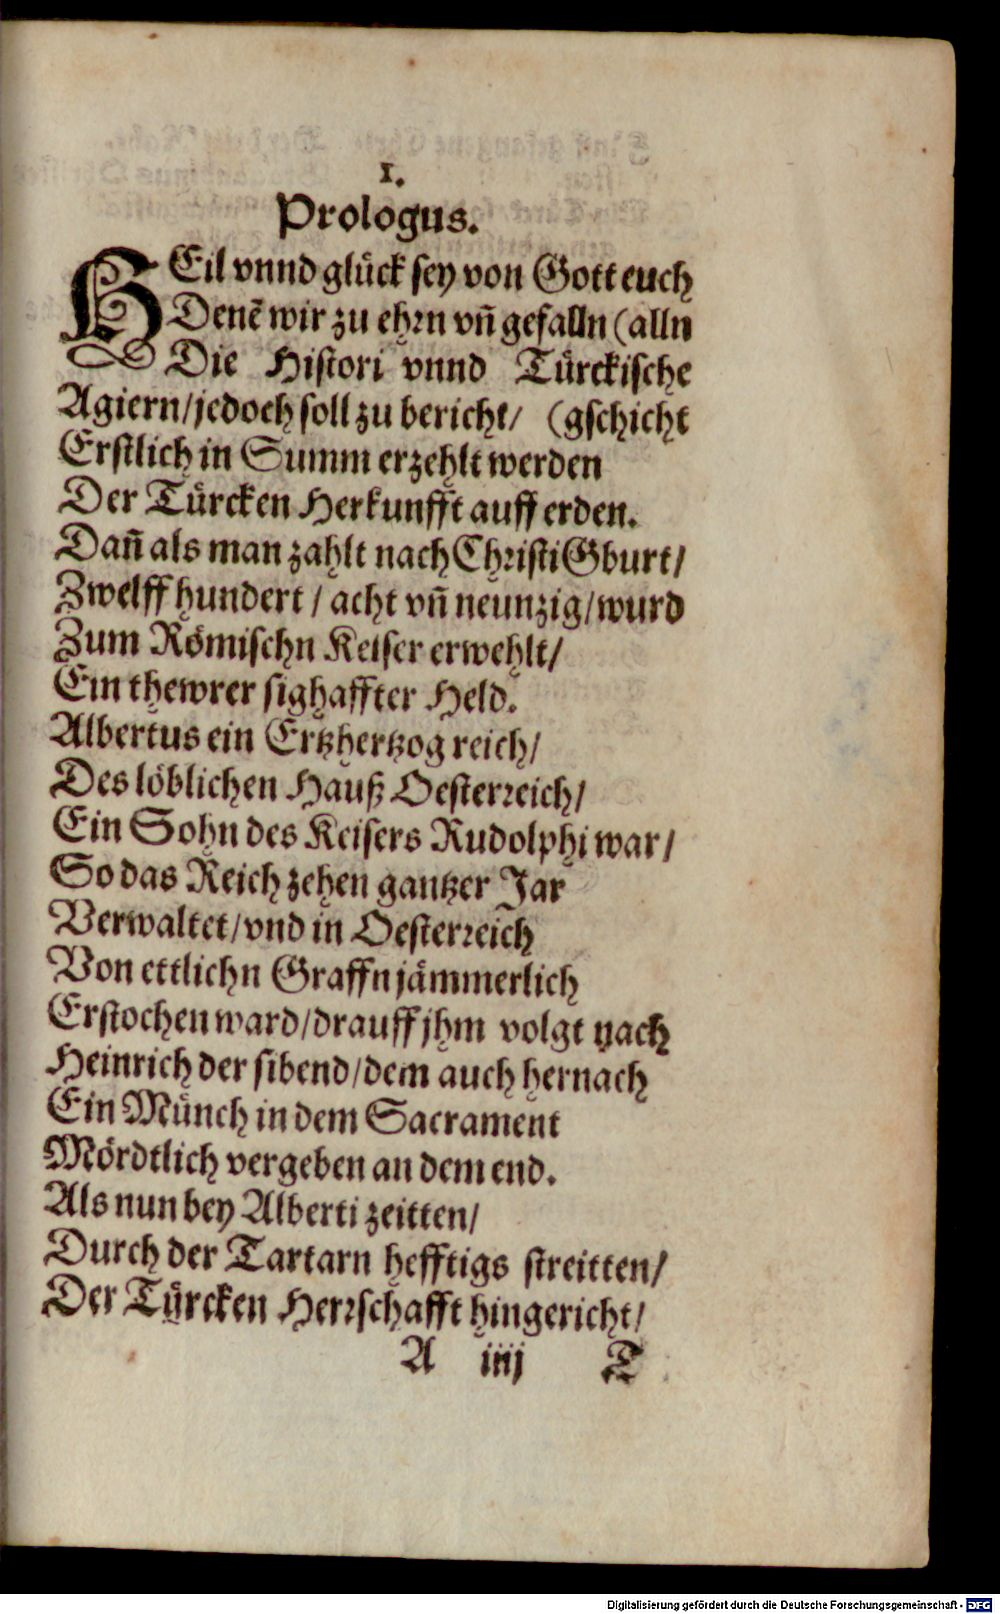 1.
Prologus.
HEil vnnd glück sey von Gott euch
Denē wir zu ehrn vñ gefalln (alln
Die Histori vnnd Türckische
Agiern/jedoch soll zu bericht/ (gschicht
Erstlich in Summ erzehlt werden
Der Türcken Herkunfft auff erden.
Dañ als man zahlt nach Christi Gburt/
Zwelff hundert / acht vñ neunzig/wurd
Zum Römischn Keiser erwehlt/
Ein thewrer sighaffter Held.
Albertus ein Ertzhertzog reich/
Des löblichen Hauß Oesterreich/
Ein Sohn des Keisers Rudolphi war/
So das Reich zehen gantzer Jar
Verwaltet/vnd in Oesterreich
Von ettlichn Graffn jämmerlich
Erstochen ward/drauff jhm volgt nach
Heinrich der sibend/dem auch hernach
Ein Münch in dem Sacrament
Mördtlich vergeben an dem end.
Als nun bey Alberti zeitten/
Durch der Tartarn hefftigs streitten/
Der Türcken Herrschafft hingericht/
A iiij T
Digitalisierung gefördert durch die Deutsche Forschungsgemeinschaft - DFG